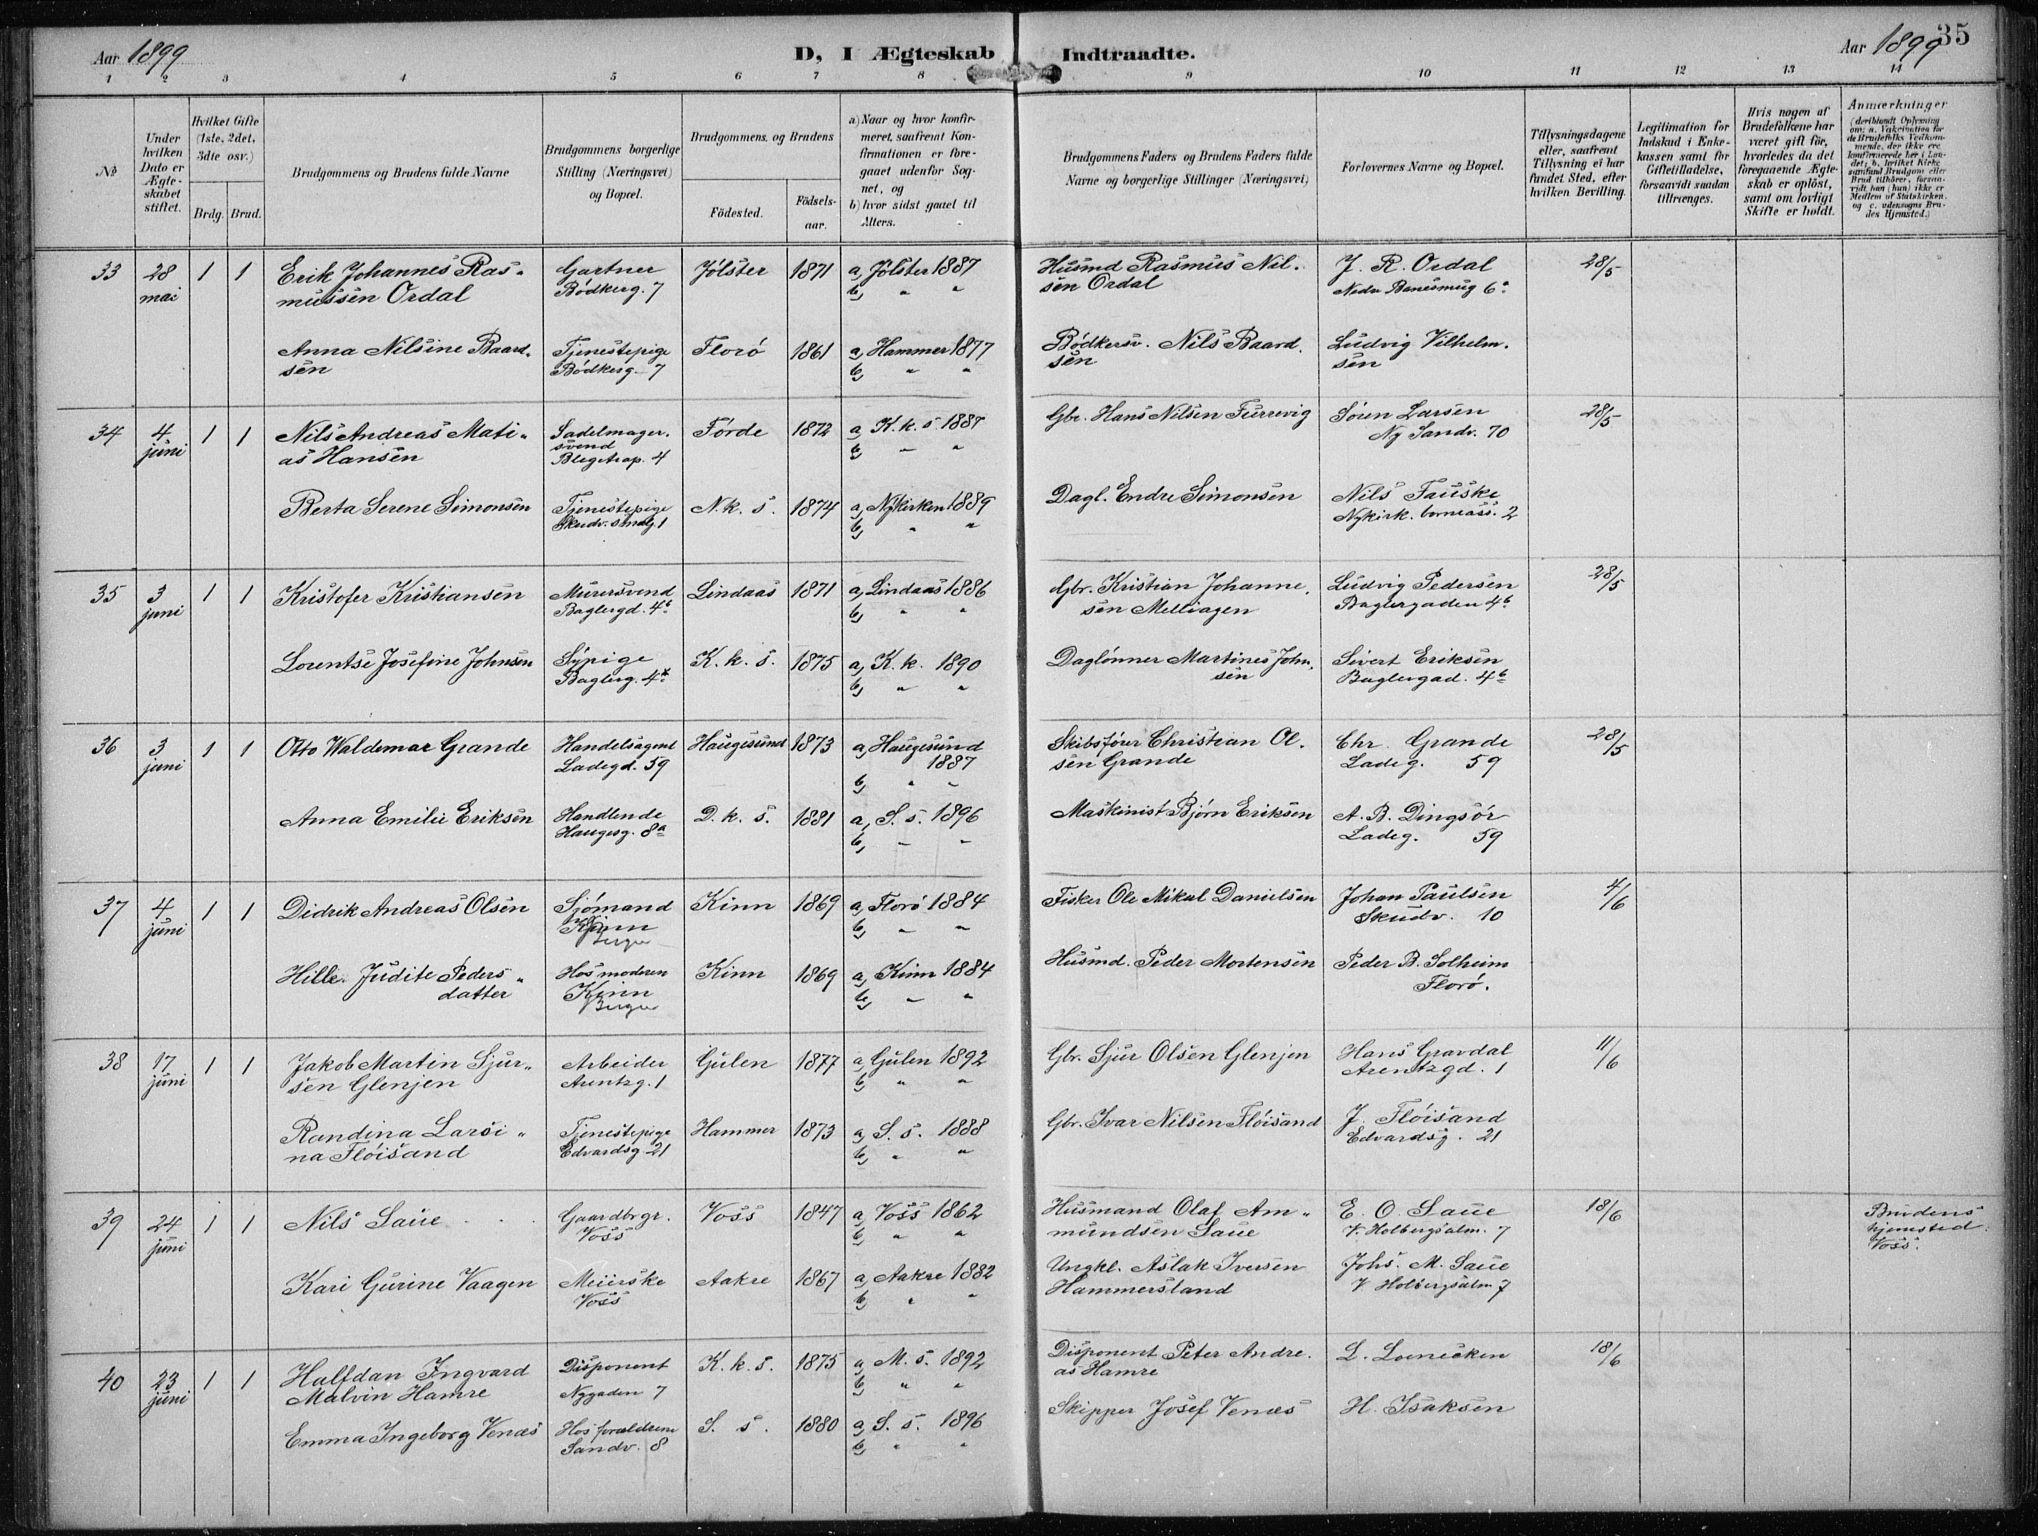 Aar 1899
D, I Ægteskab Indtraadte.
Aar 1899
35
1 2 3 4 5 6 7 8 9 10 11 12 13 14
No
Under hvilken Dato er Ægteskabet stiftet.
Hvilket Gifte (1ste, 2det, 3die osv.)
Brdg. Brud.
Brudgommens og Brudens fulde Navne
Brudgommens borgerlige Stilling (Næringsvei) og Bopæl.
Brudgommens og Brudens
Födested.
Födselsaar.
a) Naar og hvor konfirmeret, saafremt Konfirmationen er foregaaet udenfor Sognet, og
b) hvor sidst gaaet til Alters.
Brudgommens Faders og Brudens Faders fulde Navne og borgerlige Stillinger (Næringsvei)
Forlovernes Navne og Bopæl.
Tillysningsdagene eller, saafremt Tillysning ei har fundet Sted, efter hvilken Bevilling.
Legitimation for Indskud i Enkekassen samt for Giftetilladelse, forsaavidt saadan tiltrænges.
Hvis nogen af Brudefolkene har været gift för, hvorledes da det foregaaende Ægteskab er oplöst, samt om lovligt Skifte er holdt.
Anmærkninger
(deriblandt Oplysning om: a. Vakcination for de Brudefolks Vedkommende, der ikke ere konfirmerede her i Landet; b. hvilket Kirkesamfund Brudgom eller Brud tilhörer, forsaavidt han (hun) ikke er Medlem af Statskirken, og c. udensogns Brudes Hjemsted.)
33 28 mai 1 1 Erik Johannes Rasmussen Ordal Gartner Bødkerg. 7 Jølster 1871 a, Jølster 1887 b, " " Husmd Rasmus Nilsen Ordal J. R. Ordal 28/5
Anna Nilsine Baardsen Tjenestepige Bødkerg. 7 Florö 1861 a, Hammer 1877 b, " " Bødkersv. Nils Baardsen Ludvig Vilhelmsen
34 4 juni 1 1 Nils Andreas Matias Hansen Sadelmagersvend 4 Förde 1872 a, K.k.s 1887 b, " " Gbr. Hans Nilsen Furrevig Sören Larsen Ny Sandv. 70 28/5
Berta Serene Simonsen Tjenestepige N.k.s. 1874 a, Nykirken 1889 b, " " Dagl. Endre Simonsen Nils Fauske 2
35 3 juni 1 1 Kristofer Kristiansen Murersvend Baglergd. 4b Lindaas 1871 a, Lindaas 1886 b, " " Gbr. Kristian Johannesen Ludvig Pedersen Baglergaden 4b 28/5
Lorentse Josefine Johnsen Sypige Baglerg. K.k.s. 1875 a, K.k. 1890 b, " " Daglønner Martines Johnsen Sivert Eriksen Baglergad. 4b
36 3 juni 1 1 Otto Waldemar Grande Handelsagent Ladegd. 59 Haugesund 1873 a, Haugesund 1887 b, " " Skibsfører Christian Olsen Grande Chr. Grande Ladeg. 59 28/5
Anna Emilie Eriksen Handlende Haugesg. 8a D.k.s. 1881 a, S.s. 1896 b, " " Maskinist Bjørn Eriksen A. B. Dingsör Ladeg. 59
37 4 juni 1 1 Didrik Andreas Olsen Sjömand Kinn Bergen Kinn 1869 a, Florö 1884 b, " " Fisker Ole Mikal Danielsen Johan Paulsen Skudv. 10 4/6
Hille Judite Pedersdatter Hos moderen Kinn Bergen Kinn 1869 a, Kinn 1884 b, " " Husmd. Peder Mortensen Peder B. Solheim Florö.
38 17 juni 1 1 Jakob Martin Sjursen Glenjen Arbeider Arentzg. 1 Gulen 1877 a, Gulen 1892 b, " " Gbr. Sjur Olsen Glenjen Hans Gravdal Arentzgd. 1 11/6
Randina Larsina Flöisand Tjenestepige Edvardsg. 21 Hammer 1873 a, S.s. 1888 b, " " Gbr. Ivar Nilsen Flöisand J. Flöisand Edvardsg. 21
39 24 juni 1 1 Nils Saue Gaardbrgr. Voss Voss 1847 a, Voss 1862 b, " " Husmand Olaf Ammundsen Saue E. O. Saue V. Holbergsalm. 7 18/6 Brudens hjemsted Voss.
Kari Gurine Vaagen Meierske Voss Aakre 1867 a, Aakre 1882 b, " " Ungkl. Aslak Iversen Hammersland Johs. M. Saue V. Holbergsalm 7
40 23 juni 1 1 Halfdan Ingvard Malvin Hamre Disponent Nygaden 7 K.k.s. 1875 a, M.s. 1892 b, " " Disponent Peter Andreas Hamre 18/6
Emma Ingeborg Venæs Hos forældrene Sandv. 8 S.s. 1880 a, S.s. 1896 b, " " Skipper Josef Venæs H. Isaksen